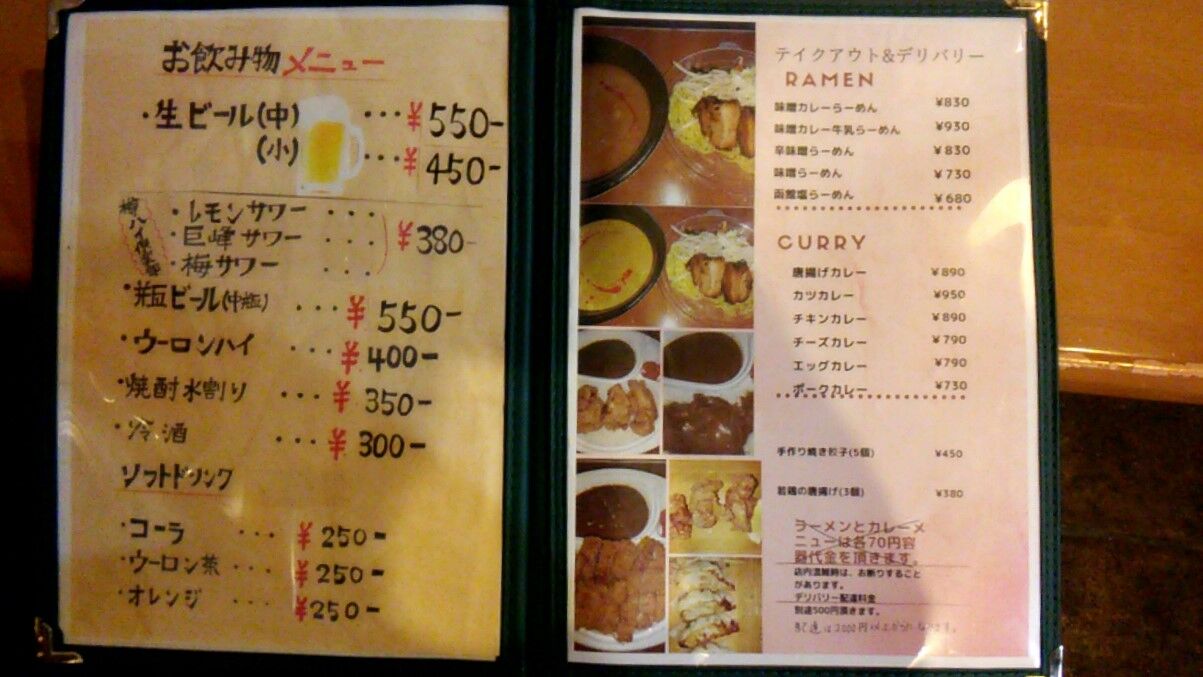 お飲み物メニュー
・生ビール(中) ・・・¥550-
(小) ・・・¥450-
・レモンサワー ・・・
・巨峰サワー ・・・ ¥380-
・梅サワー ・・・
・瓶ビール(中瓶) ・・・¥550-
・ウーロンハイ ・・・¥400-
・焼酎水割り ・・・¥350-
・冷酒 ・・・¥300-
ソフトドリンク
・コーラ ・・・¥250-
・ウーロン茶 ・・・¥250-
・オレンジ ・・・¥250-
テイクアウト&デリバリー
RAMEN
味噌カレーらーめん ¥830
味噌カレー牛乳らーめん ¥930
辛味噌らーめん ¥830
味噌らーめん ¥730
函館塩らーめん ¥680
CURRY
唐揚げカレー ¥890
カツカレー ¥950
チキンカレー ¥890
チーズカレー ¥790
エッグカレー ¥790
ポークカレー ¥730
手作り焼き餃子(5個) ¥450
若鶏の唐揚げ(3個) ¥380
ラーメンとカレーメ
ニューは各70円容
器代金を頂きます。
店内混雑時は、お断りすること
があります。
デリバリー配達料金
別途500円頂きます。
配達は2000円以上から